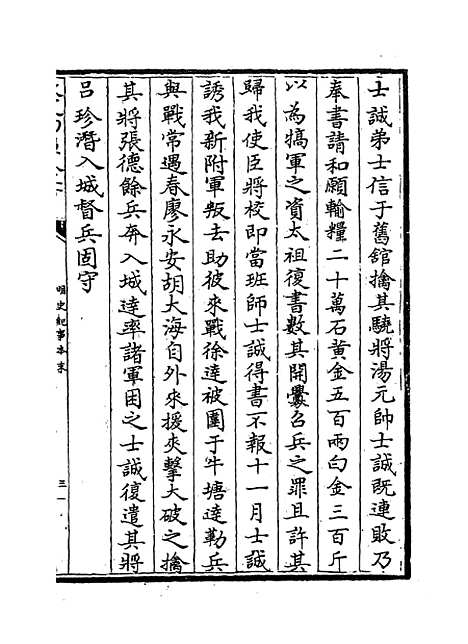 士誠弟士信于舊館擒其驍將湯元帥士誠既連敗乃
奉書請和願輸糧二十萬石黃金五百兩白金三百斤
以為犒軍之資太祖復書數其開釁召兵之罪且許其
歸我使臣將校即當班師士誠得書不報十一月士誠
誘我新附軍叛去助彼來戰徐達被圍于牛塘達勒兵
與戰常遇春廖永安胡大海自外來援夾擊大破之擒
其將張德餘兵奔入城達率諸軍困之士誠復遣其將
呂珍潛入城督兵固守
明史紀事本末
三一